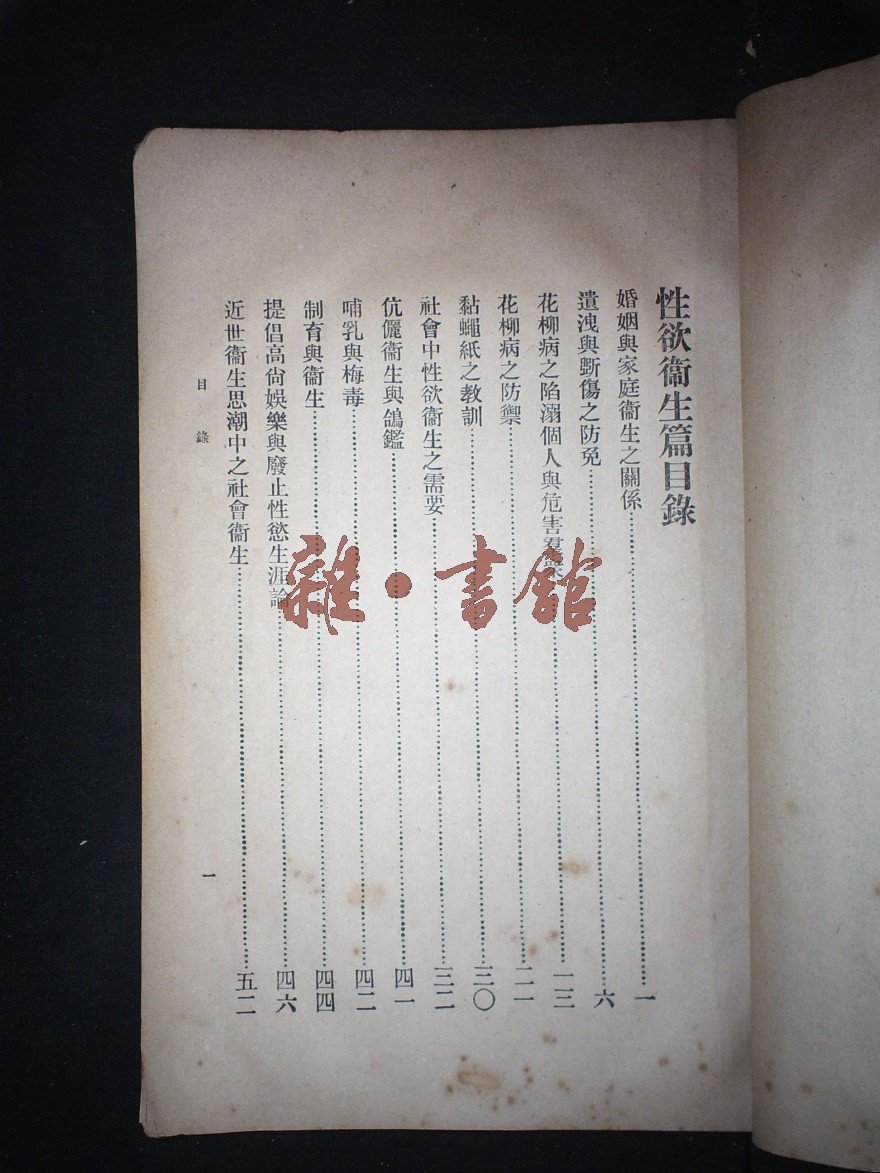 性欲衞生篇目錄
婚姻與家庭衞生之關係……一
遺洩與斲傷之防免……六
花柳病之陷溺個人與危害羣……一三
花柳病之防禦……二一
黏蠅紙之教訓……三〇
社會中性欲衞生之需要……三二
伉儷衞生與鴿鑑……四一
哺乳與梅毒……四二
制育與衞生……四四
提倡高尙娛樂與廢止性慾生涯論……四六
近世衞生思潮中之社會衞生……五二
目錄
一
雜·書館